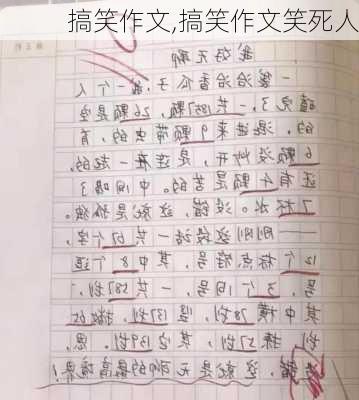 搞笑作文,搞笑作文笑死人
我好无聊
一袋洽洽香瓜子,我一个人
嗑完了,一共1857颗,26颗是空
的,混进来9颗带虫的,有
6颗没炒开,是连在一起的,
还有4颗是苦的。中间喝了
7杯水。没错,这就是孤独。
——刚刚这段话一共67个字,
12个标点符号,其中8个逗
号,3个句号,一共587划,
其中横78划,竖137划,撇捺
划,其它139划。恩,
没错,这就是无聊的最高境界!